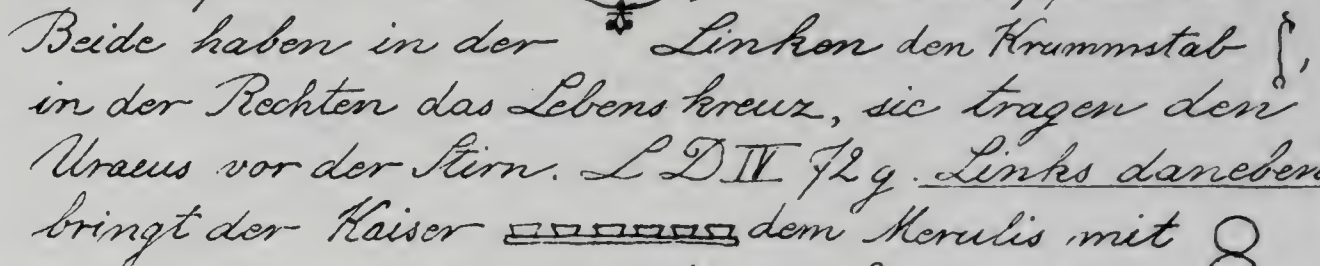 Beide haben in der Linken den Krummstab ,
in der Rechten das Lebenskreuz, sie tragen den
Uraeus vor der Stirn. L D IV 72 g. Links daneben
bringt der Kaiser dem Merulis mit